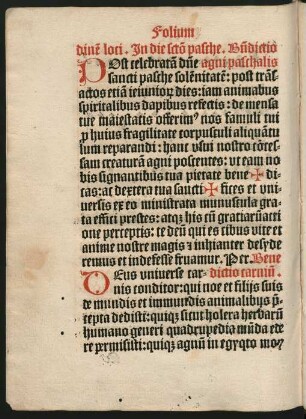 Folium
diuẽ loci. In die sctõ pasche. Bñdictio
POst celebratã dñe agni paschalis
sancti pasche solẽnitatẽ: post trãs-
actos etiã ieiunioꝝ dies: iam animabus
spiritalibus dapibus refectis: de mensa
tue maiestatis offerimꝰ nos famuli tui
ꝓ huius fragilitate corpusculi aliquãtu
lum reparandi: hanc vsui nostro cõces-
sam creaturã agni poscentes: vt eam no
bis signantibus tua pietate bene✠di
cas: ac dextera tua sancti✠fices et vni-
uersis ex eo ministrata munuscula gra
ta effici prestes: atqꝫ his cũ gratiarũacti
one perceptis: te deũ qui es cibus vite et
anime nostre magis ⁊ inhianter desyde
remus et indefesse fruamur. Per. Bene
DEus vniuerse car- dictio carniũ.
nis conditor: qui noe et filijs suis
de mundis et immundis animalibus p̃-
cepta dedisti: quiqꝫ sicut holera herbarũ
humano generi quadrupedia mũda ede
re permisisti: quiqꝫ agnũ in egypto moy